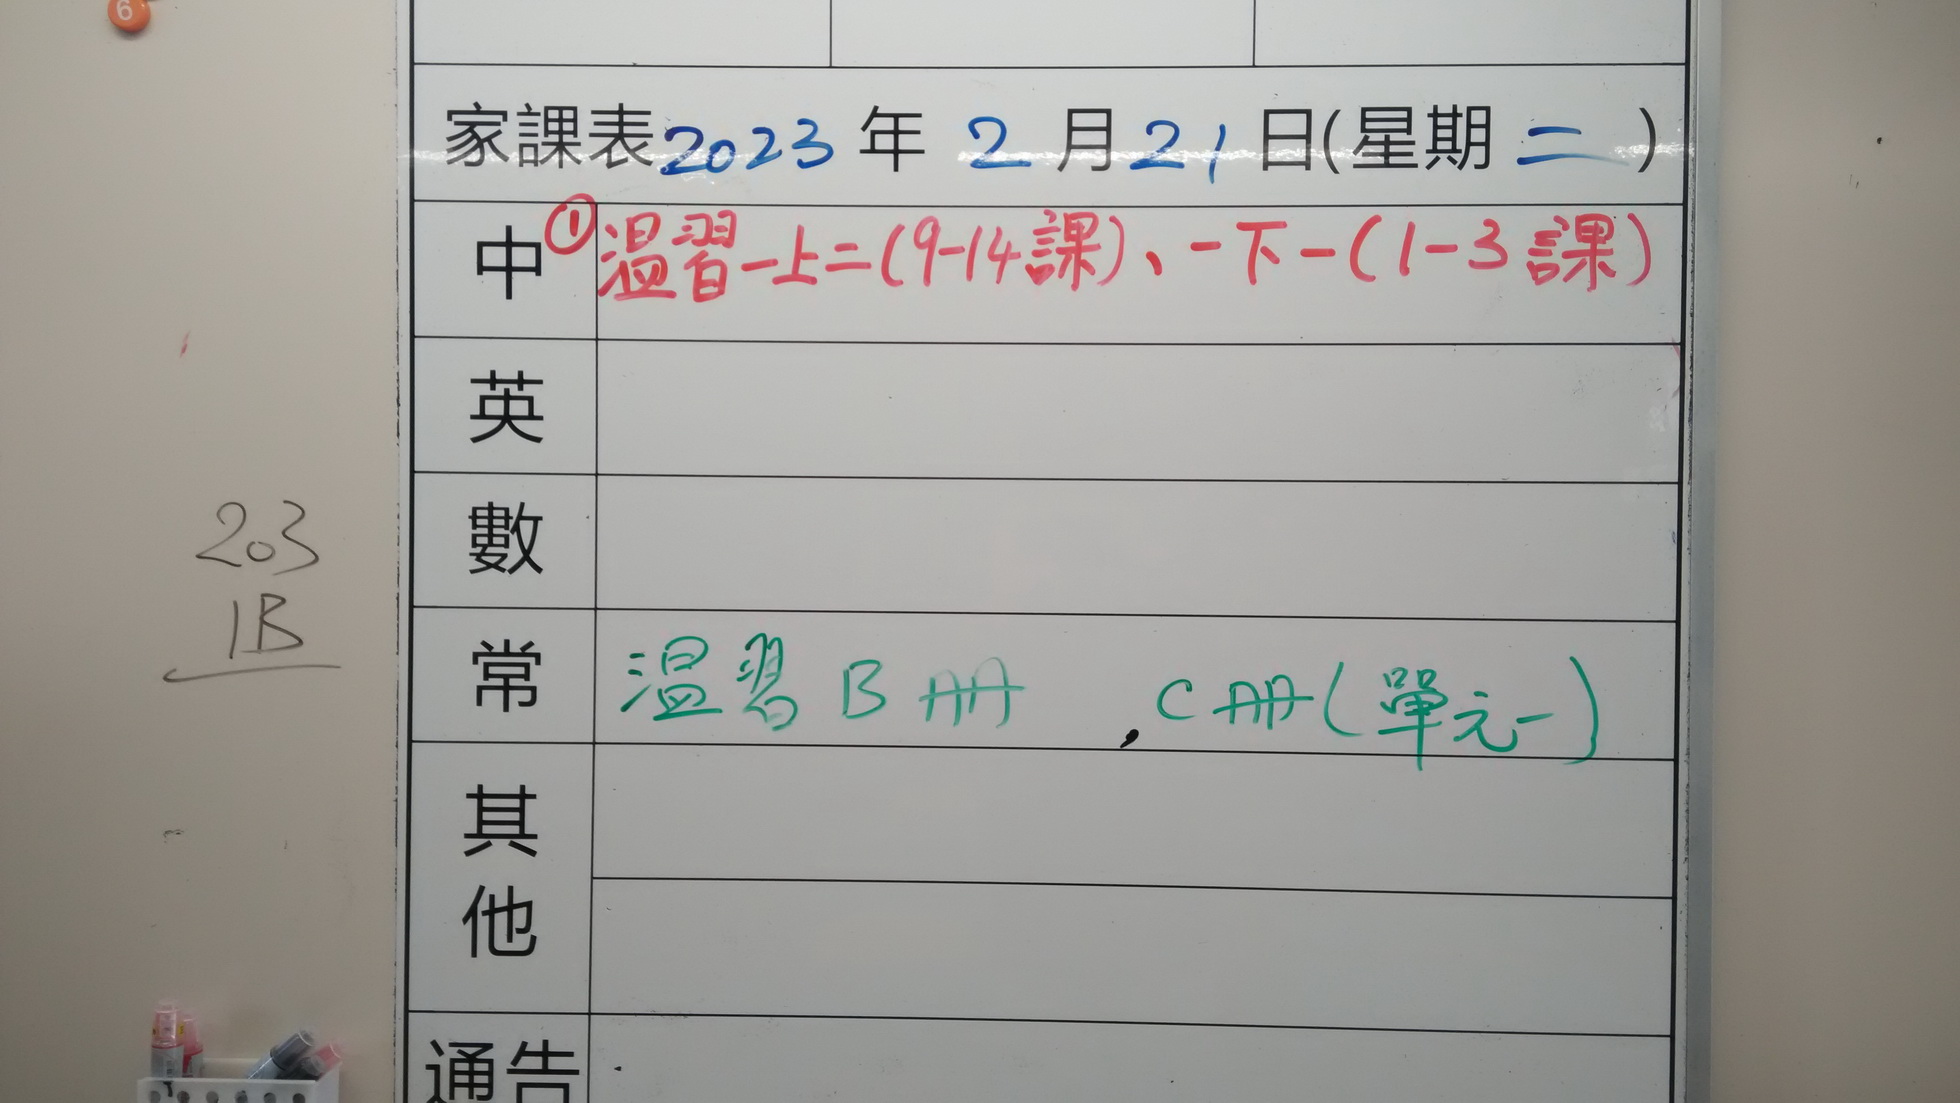 6
家課表2023年2月21日(星期二)
中 ①温習一上二(9-14課)、一下一(1-3課)
英
數
203
1B
常 温習B冊,C冊(單元一)
其他
通告